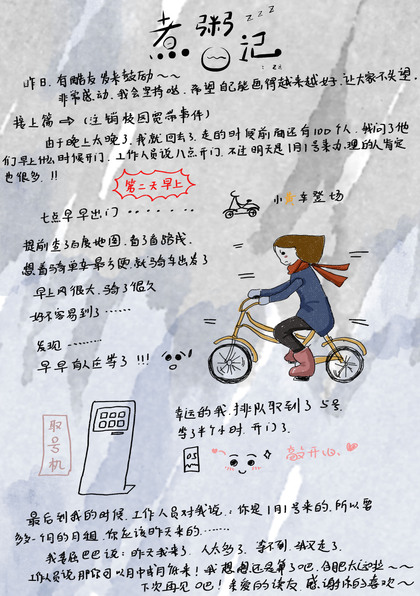 煮粥日记 zzz
昨日,有酷友发来鼓励~~
非常感动,我会坚持哒,希望自己能画得越来越好,让大家不失望。
接上篇⇨(注销校园宽带事件)
由于晚上太晚了,我就回去了,走的时候前面还有100个人,我问了他
们早上什么时候开门,工作人员说八点开门,不过明天是1月1号来办理的人肯定
也很多,!!
第二天早上
七点早早出门········
小黄车登场
提前查了百度地图,看了看路线,
想着骑单车最方便,就骑车出发了
早上风很大,骑了很久
好不容易到了······
发现········
早早有人在等了!!!
取号机
幸运的我,排队取到了5号,
等了半个小时,开门了。
05
敲开心、
最后到我的时候,工作人员对我说:你是1月1号来的,所以要
多一个月的月租,你应该昨天来的·······
我委屈巴巴说:昨天我来了,人太多了,等不到,就又走了。
工作人员说那你可以月中或月底来!我想想还是算了吧!合肥太远啦~~
下次再见吧!亲爱的读友,感谢你的喜欢~